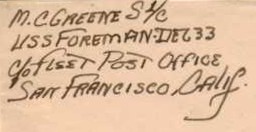 M.C. GREENE S1/C
USS FOREMAN-DE633
c/o FLEET POST OFFICE
SAN FRANCISCO, CALIF.